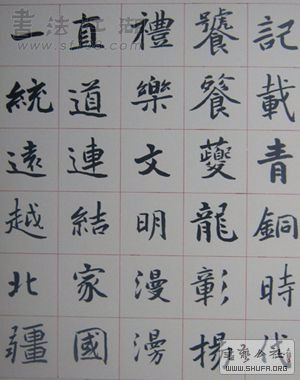 記載青銅時代
饕餮夔龍彰揚
禮樂文明漫漫
直道連結家國
一統遠越北疆
書法江湖
www.sf
書藝公社
www.shufa.org